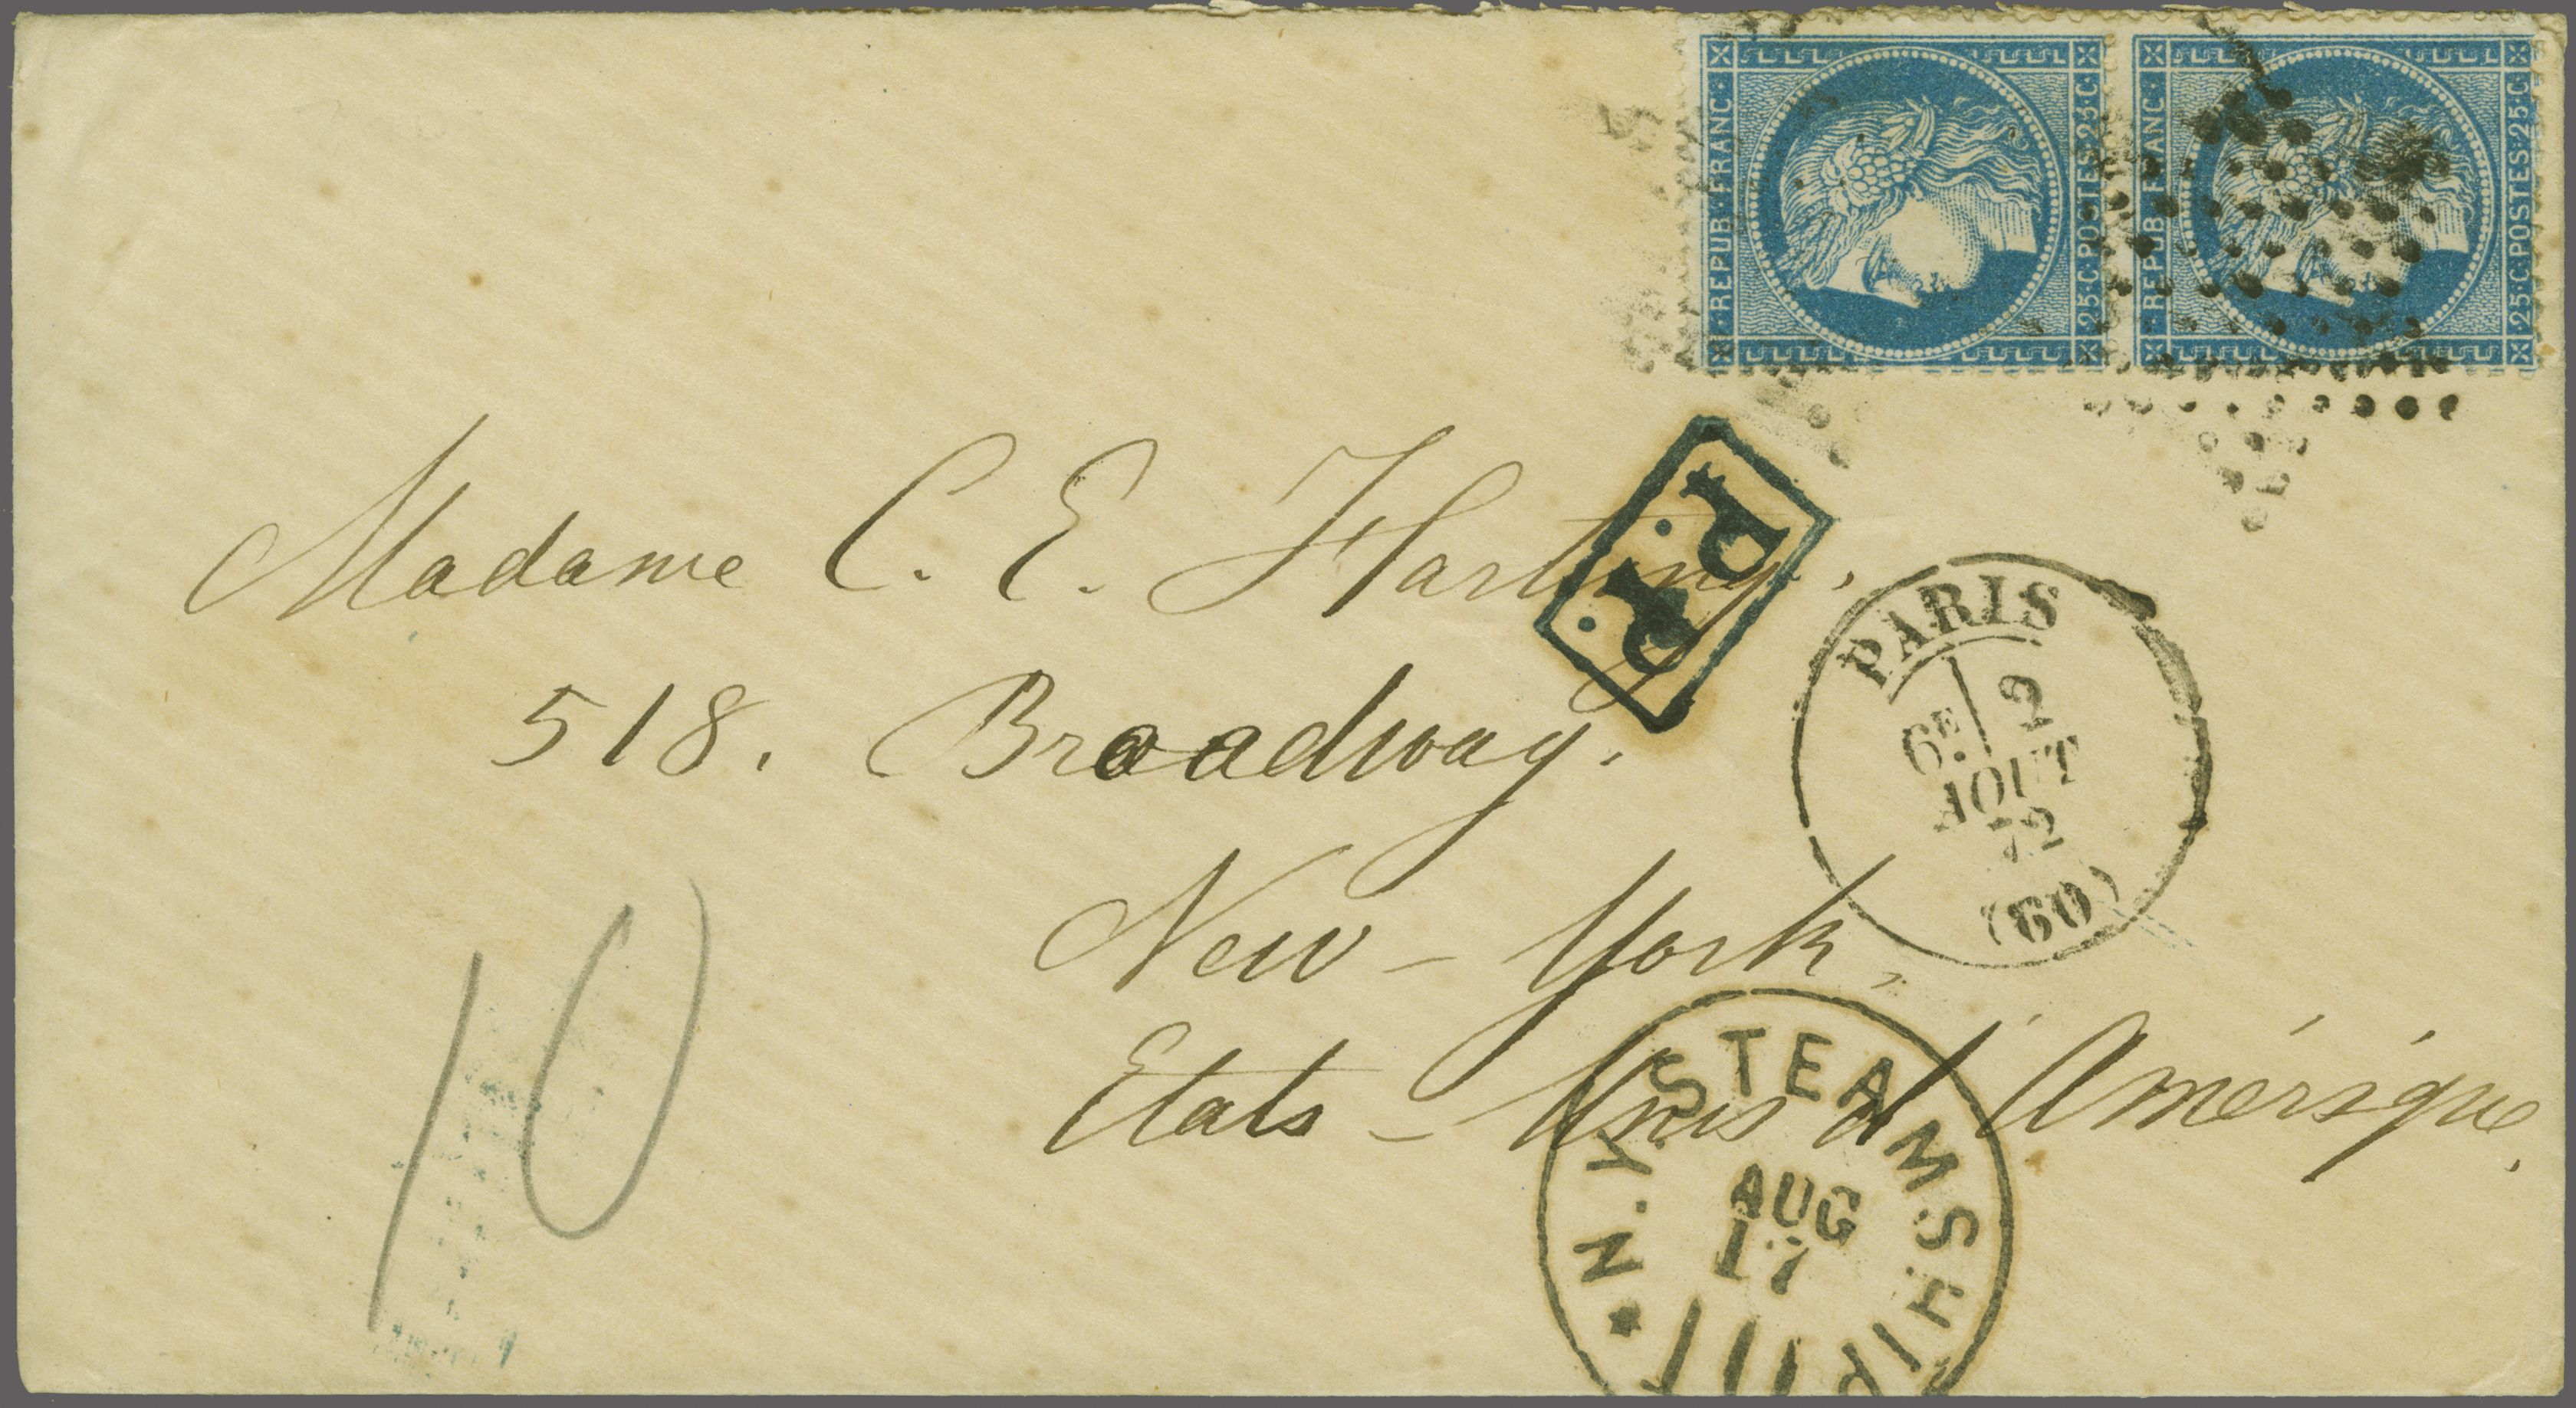 REPUB·FRANC·
25·C·POSTES·25·C·
REPUB·FRANC·
25·C·POSTES·25·C·
P.P.
Madame C. E. Hartung,
518. Broadway.
New-York,
Etats-Unis d'Amérique.
PARIS
6E 2
AOUT
72
(60)
N.Y. STEAMSHIP
AUG
17
10